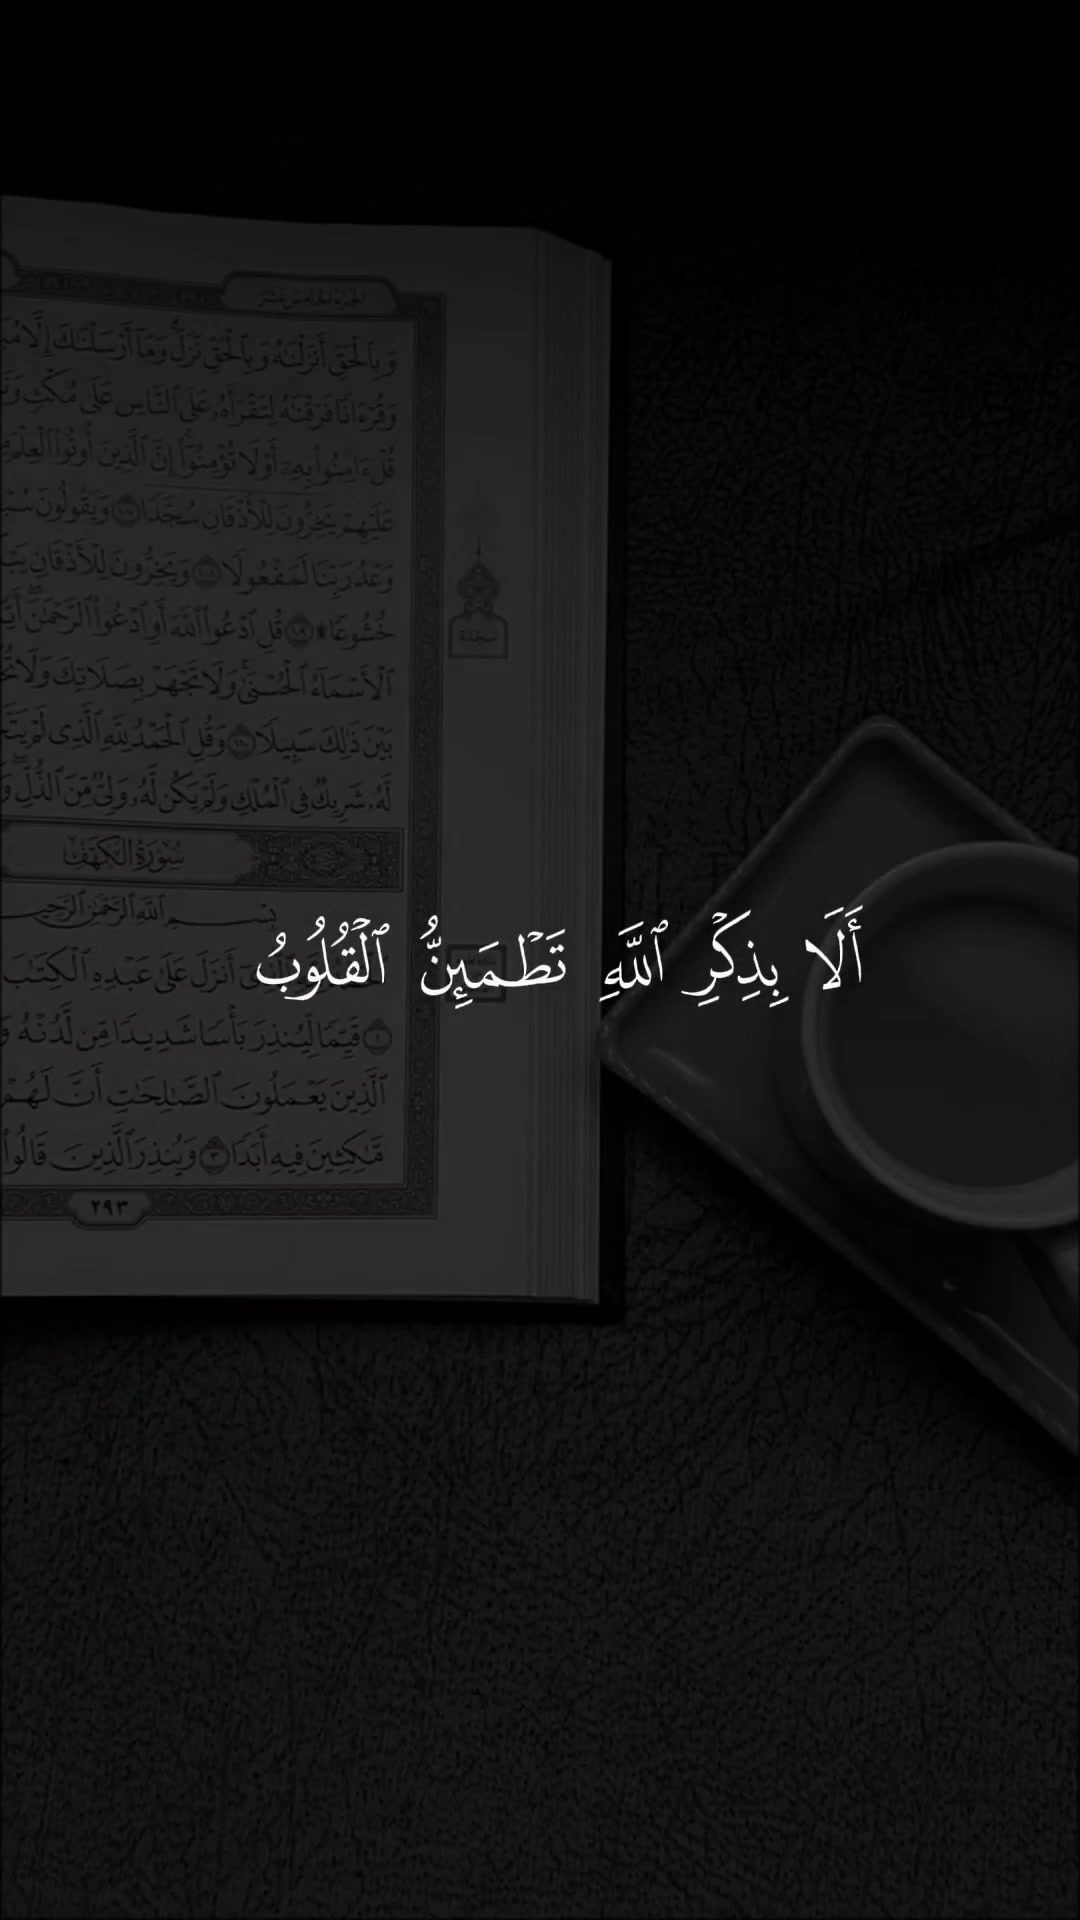 الجزء الخامس عشر
وَبِالْحَقِّ أَنزَلْنَٰهُ وَبِالْحَقِّ نَزَلَ وَمَآ أَرْسَلْنَٰكَ إِلَّا
وَقُرْءَانًا فَرَقْنَٰهُ لِتَقْرَأَهُۥ عَلَى ٱلنَّاسِ عَلَىٰ مُكْثٍ
قُلْ ءَامِنُوا۟ بِهِۦٓ أَوْ لَا تُؤْمِنُوٓا۟ إِنَّ ٱلَّذِينَ أُوتُوا۟ ٱلْعِلْمَ
عَلَيْهِمْ يَخِرُّونَ لِلْأَذْقَانِ سُجَّدًا ١٠٧ وَيَقُولُونَ
وَعْدُ رَبِّنَا لَمَفْعُولًا ١٠٨ وَيَخِرُّونَ لِلْأَذْقَانِ
خُشُوعًا ۩ ١٠٩ قُلِ ٱدْعُوا۟ ٱللَّهَ أَوِ ٱدْعُوا۟ ٱلرَّحْمَٰنَ
سجدة
ٱلْأَسْمَآءُ ٱلْحُسْنَىٰ وَلَا تَجْهَرْ بِصَلَاتِكَ وَلَا
بَيْنَ ذَٰلِكَ سَبِيلًا ١١٠ وَقُلِ ٱلْحَمْدُ لِلَّهِ ٱلَّذِى لَمْ
لَّهُۥ شَرِيكٌ فِى ٱلْمُلْكِ وَلَمْ يَكُن لَّهُۥ وَلِىٌّ مِّنَ ٱلذُّلِّ
سُورَةُ الكَهْفِ
بِسْمِ ٱللَّهِ ٱلرَّحْمَٰنِ ٱلرَّحِيمِ
أَلَا بِذِكْرِ ٱللَّهِ تَطْمَئِنُّ ٱلْقُلُوبُ
أَنزَلَ عَلَىٰ عَبْدِهِ ٱلْكِتَٰبَ
١ قَيِّمًا لِّيُنذِرَ بَأْسًا شَدِيدًا مِّن لَّدُنْهُ
ٱلَّذِينَ يَعْمَلُونَ ٱلصَّٰلِحَٰتِ أَنَّ لَهُمْ
مَّٰكِثِينَ فِيهِ أَبَدًا ٣ وَيُنذِرَ ٱلَّذِينَ قَالُوا۟
٢٩٣